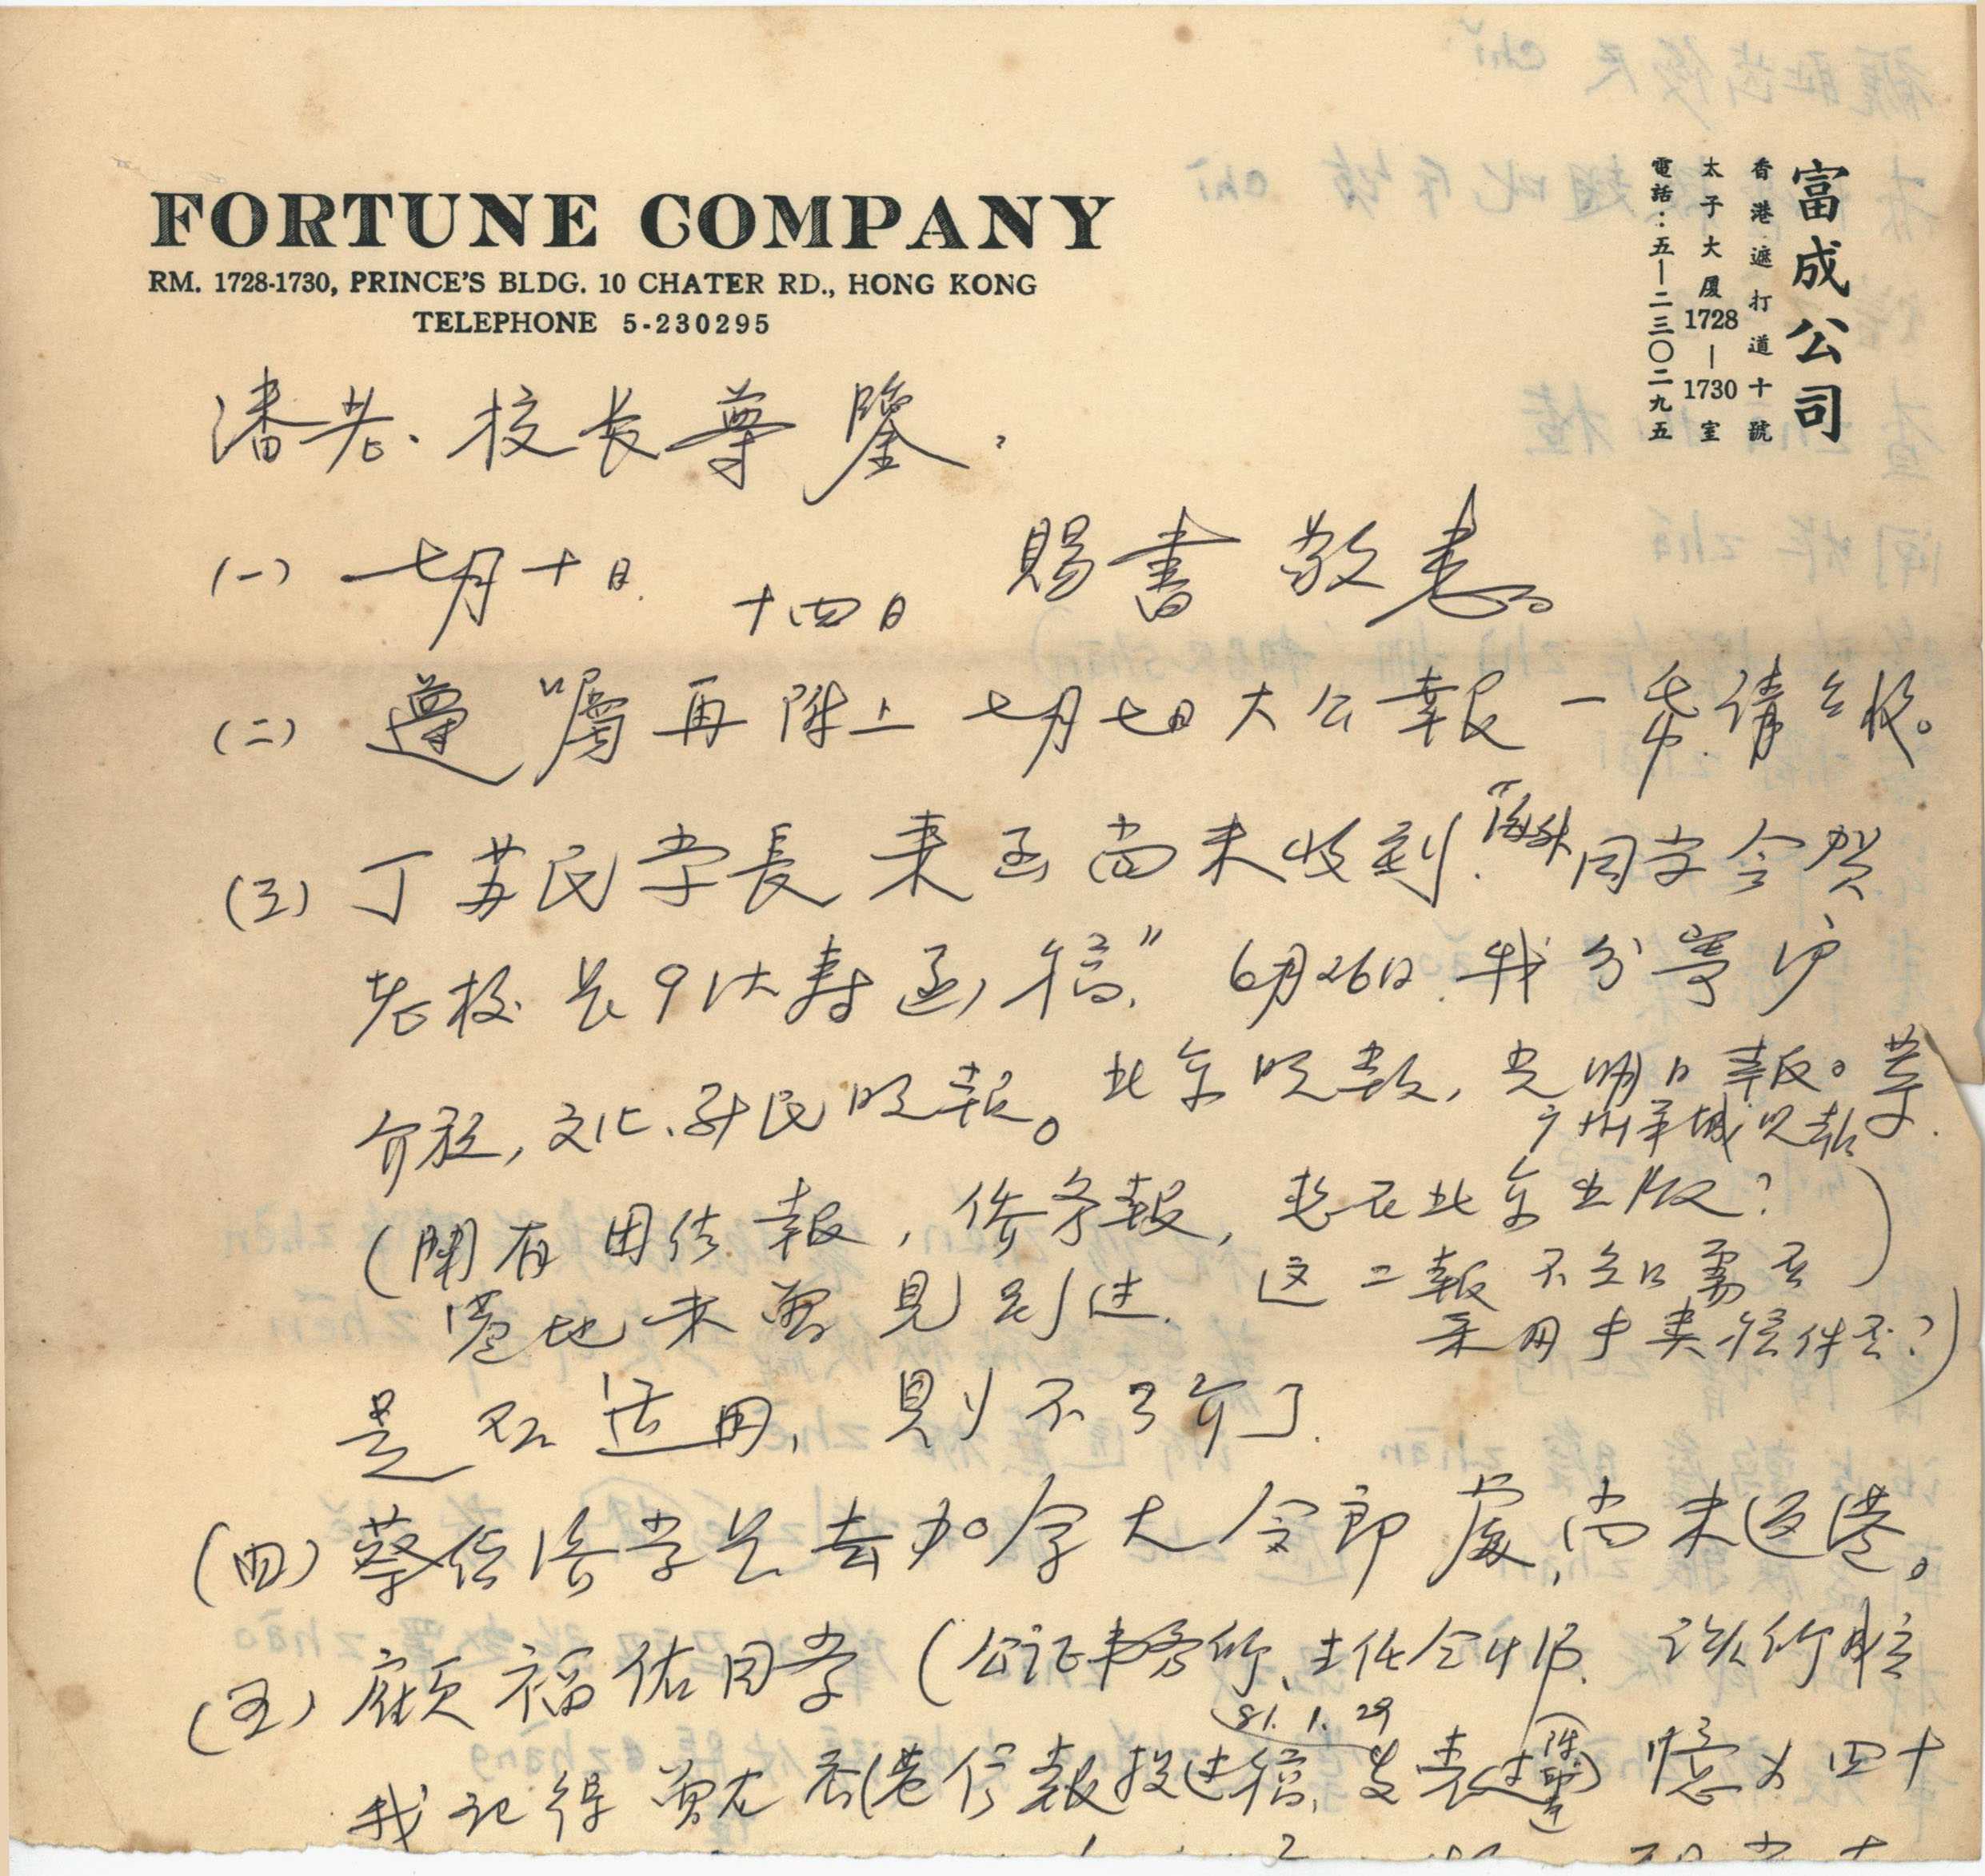 FORTUNE COMPANY
RM. 1728-1730, PRINCE'S BLDG. 10 CHATER RD., HONG KONG
TELEPHONE 5-230295
富成公司
香港遮打道十號
太子大厦1728—1730室
電話：五—二三〇二九五
潘老、校长尊鑒，
(一) 七月十日. 十四日 賜書敬悉。
(二) 遵囑再附上七月七日大公報一帋.请台收。
(三) 丁苏民学長来函尚未收到.“海外同学会贺
老校长91大寿函稿,” 6月26日.我分寄沪
介放,文化.新民晚報。北京晚報,光明日報。等.
广州羊城晚報
(闻有团结報,参考報,悉在北京出版?
港地未曾見到过. 这二報不知需否)
采用中英稿件否?)
是不适用,則不了介了.
(四) 蔡 学长去加拿大令郎處,尚未返港。
(五) 顧福佑同学(公证事务所.主任会计师.
81.1.29
我记得曾在香港信報投过稿,发表过(附 ) 憶为四十